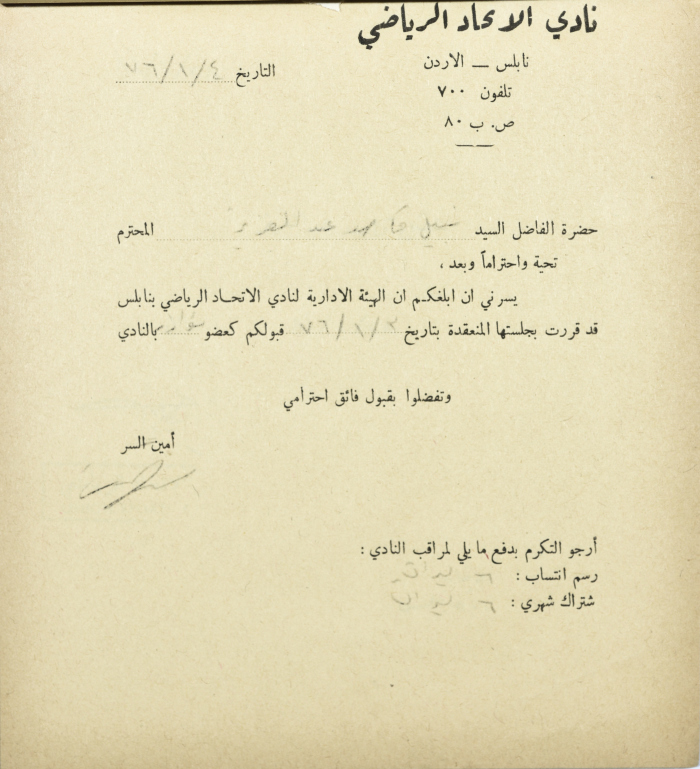 نادي الاتحاد الرياضي
نابلس — الاردن
تلفون ٧٠٠
ص. ب ٨٠
التاريخ ٧٦/١/٤
حضرة الفاضل السيد نبيل عبد المحترم
تحية واحتراماً وبعد ،
يسرني ان ابلغكم ان الهيئة الادارية لنادي الاتحاد الرياضي بنابلس
قد قررت بجلستها المنعقدة بتاريخ ٧٦/١/٣ قبولكم كعضو مؤازر بالنادي
وتفضلوا بقبول فائق احترامي
أمين السر
أرجو التكرم بدفع ما يلي لمراقب النادي :
رسم انتساب : ٦ ليرات
شتراك شهري : ٦ ليرات